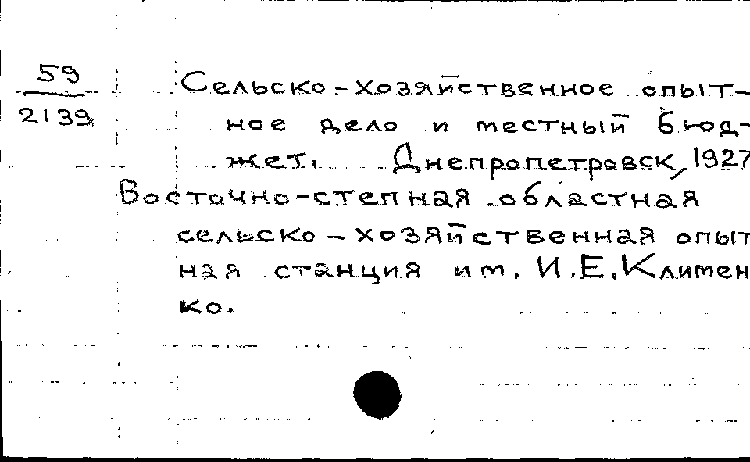 59
2139
Сельско-хозяйственное опыт-
ное дело и местный бюд-
жет. Днепропетровск, 1927
Восточно-степная областная
сельско-хозяйственная опыт
ная станция им. И.Е.Климен
ко.